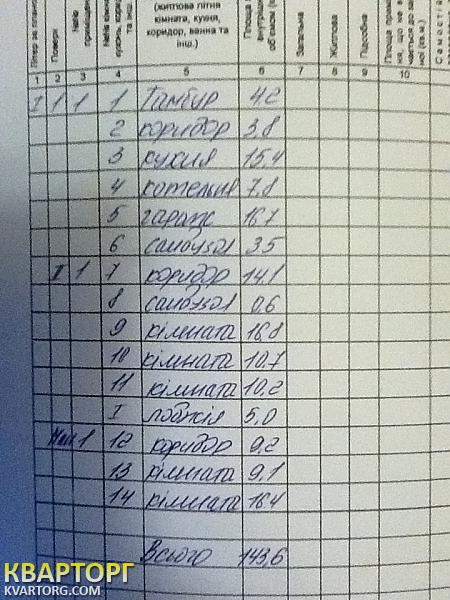 (житлова літня
кімната, кухня,
коридор, ванна та
інш.)
Літер за планом
Поверх
Загальна
Житлова
Підсобна
1 2 3 4 5 6 7 8 9 10
I 1 1 1 Тамбур 4.2
2 коридор 3,8
3 кухня 15,4
4 котельня 7,8
5 гараж 16.7
6 санвузол 3.5
1 7 коридор 14,1
8 санвузол 0,6
9 кімната 16,8
10 кімната 10,7
11 кімната 10,2
I лоджія 5,0
1 12 коридор 9,2
13 кімната 9,1
14 кімната 16,4
Всього 143,6
КВАРТОРГ
KVARTORG.COM